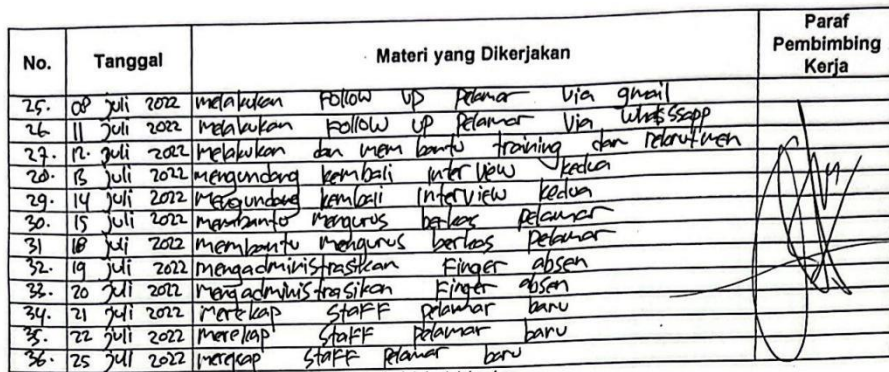 No. Tanggal Materi yang Dikerjakan Paraf Pembimbing Kerja
25. 08 juli 2022 melakukan Follow UP pelamar Via gmail
26 11 juli 2022 melakukan Follow UP pelamar Via whatsSsapp
27. 12. juli 2022 melakukan dan membantu training dan rekrutmen
28. 13 juli 2022 mengundang kembali interview kedua
29. 14 juli 2022 mengundang kembali interview kedua
30. 15 juli 2022 membantu mengurus berkas pelamar
31 18 juli 2022 membantu mengurus berkas pelamar
32. 19 juli 2022 mengadministrasikan Finger absen
33. 20 juli 2022 mengadministrasikan Finger absen
34. 21 juli 2022 merekap staFF pelamar baru
35. 22 juli 2022 merekap staFF pelamar baru
36. 25 juli 2022 merekap staFF pelamar baru